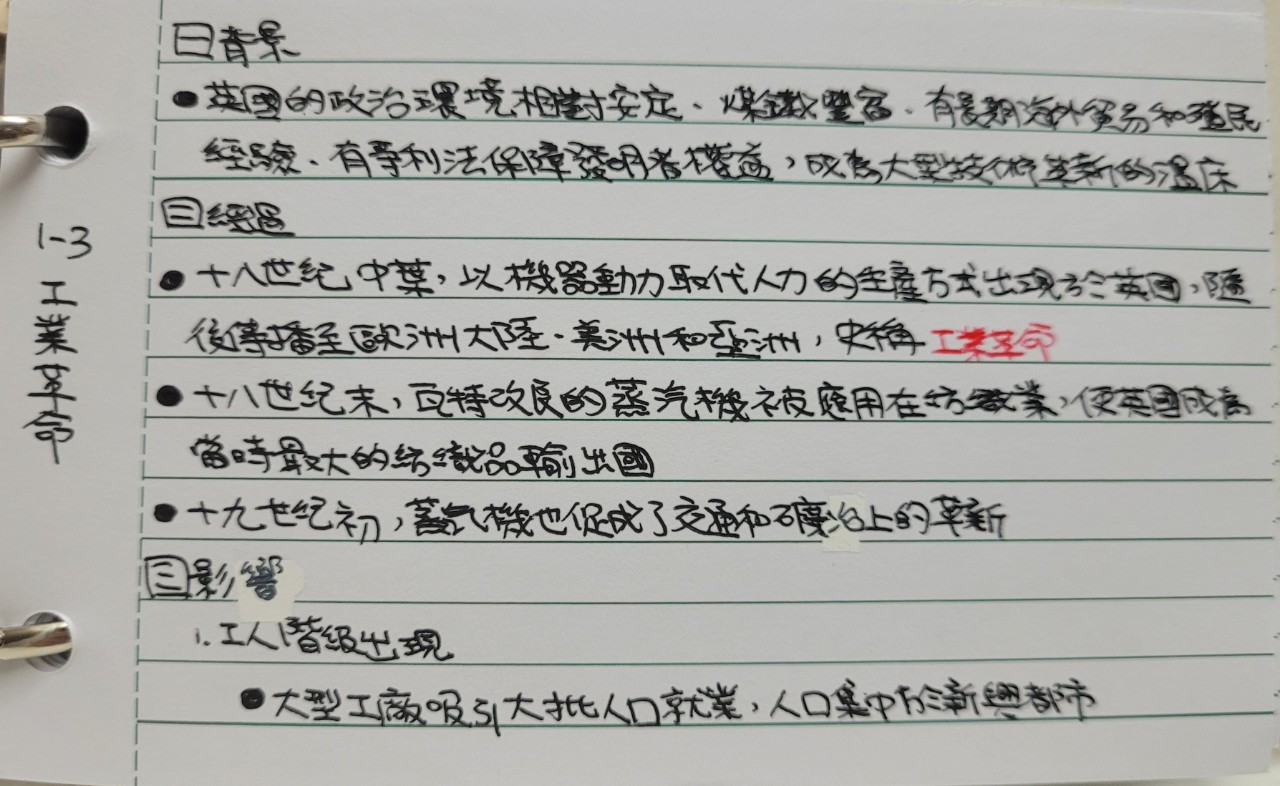 1-3 工業革命
㊀背景
●英國的政治環境相對安定、煤鐵豐富、有長期海外貿易和殖民
經驗、有專利法保障發明者權益，成為大型技術革新的溫床
㊁經過
●十八世紀中葉，以機器動力取代人力的生產方式出現於英國，隨
後傳播至歐洲大陸、美洲和亞洲，史稱工業革命
●十八世紀末，瓦特改良的蒸汽機被應用在紡織業，使英國成為
當時最大的紡織品輸出國
●十九世紀初，蒸氣機也促成了交通和礦冶上的革新
㊂影響
1.工人階級出現
●大型工廠吸引大批人口就業，人口集中於新興都市